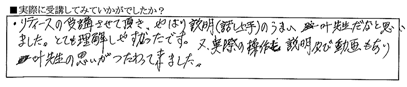 ■実際に受講してみていかがでしたか？
・リティースの受講させて頂き、やはり説明(話し上手)のうまい 一叶先生だなと思い
ました。とても理解しやすかったです。又、実際の操作も 説明及び動画もあり
一叶先生の思いがつたわって来ました。